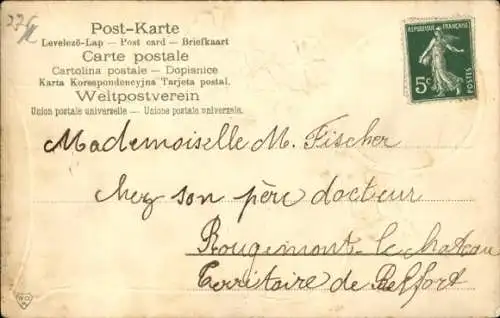 Post-Karte
Levelező-Lap — Post card — Briefkaart
Carte postale
Cartolina postale — Dopisnice
Karta Korespondencyjna Tarjeta postal.
Weltpostverein
Union postale universelle — Unione postale universale.
REPUBLIQUE FRANÇAISE
5c
POSTES
Mademoiselle M. Fischer
chez son père docteur
Rougemont-le-Chateau
Territoire de Belfort